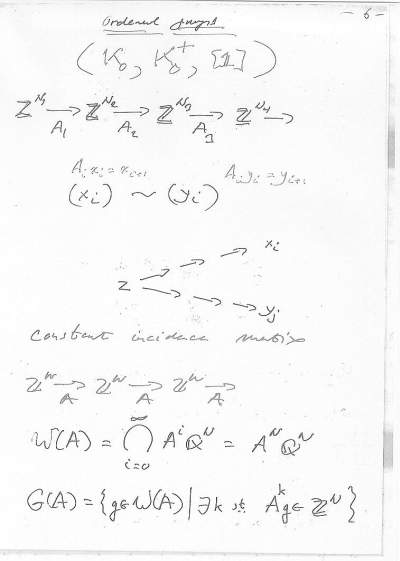 - 6 -
Ordered groups
(K₀, K₀⁺, [1])
ℤ^{N₁} → ℤ^{N₂} → ℤ^{N₃} → ℤ^{N₄} →
A₁ A₂ A₃
A_i x_i = x_{i+1} A_i y_i = y_{i+1}
(x_i) ~ (y_i)
x_i
z
y_j
constant incidence matrix
ℤᴺ → ℤᴺ → ℤᴺ →
A A A
W(A) = ⋂_{i=0}^{∞} Aⁱ ℚᴺ = Aᴺ ℚᴺ
G(A) = {g ∈ W(A) | ∃k st. Aᵏg ∈ ℤᴺ}